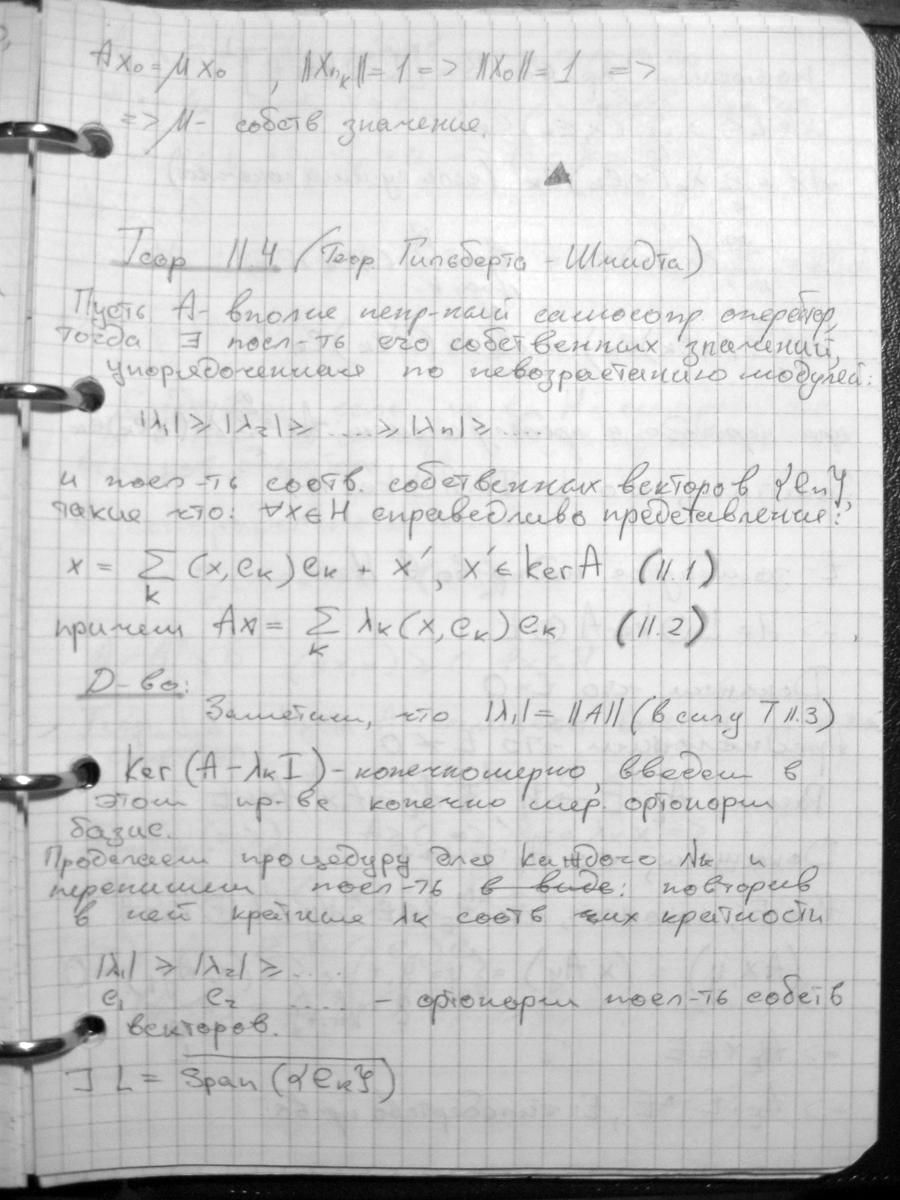 Ax₀ = μx₀ , ||xₙₖ|| = 1 => ||x₀|| = 1 =>
=> μ - собств значение.
Теор 11.4 (Теор. Гильберта - Шмидта)
Пусть A - вполне непр-ный самосопр оператор,
тогда ∃ посл-ть его собственных значений,
упорядоченная по невозрастанию модулей:
|λ₁| ⩾ |λ₂| ⩾ ..... ⩾ |λₙ| ⩾ ....
и посл-ть соотв. собственных векторов {eₙ},
такие что: ∀x∈H справедливо представление:
x = ∑ₖ (x, eₖ) eₖ + x', x' ∈ ker A (11.1)
причем Ax = ∑ₖ λₖ (x, eₖ) eₖ (11.2)
Д-во:
Заметим, что |λ₁| = ||A|| (в силу Т 11.3)
Ker (A - λₖI) - конечномерно, введем в
этом пр-ве конечно мер. ортонорм
базис.
Проделаем процедуру для каждого λₖ и
перепишем посл-ть в виде: повторив
в ней кратные λₖ соотв их кратности
|λ₁| ⩾ |λ₂| ⩾ ....
e₁ e₂ ..... - ортонорм посл-ть собств
векторов.
∃ L = \overline{Span ({eₖ})}